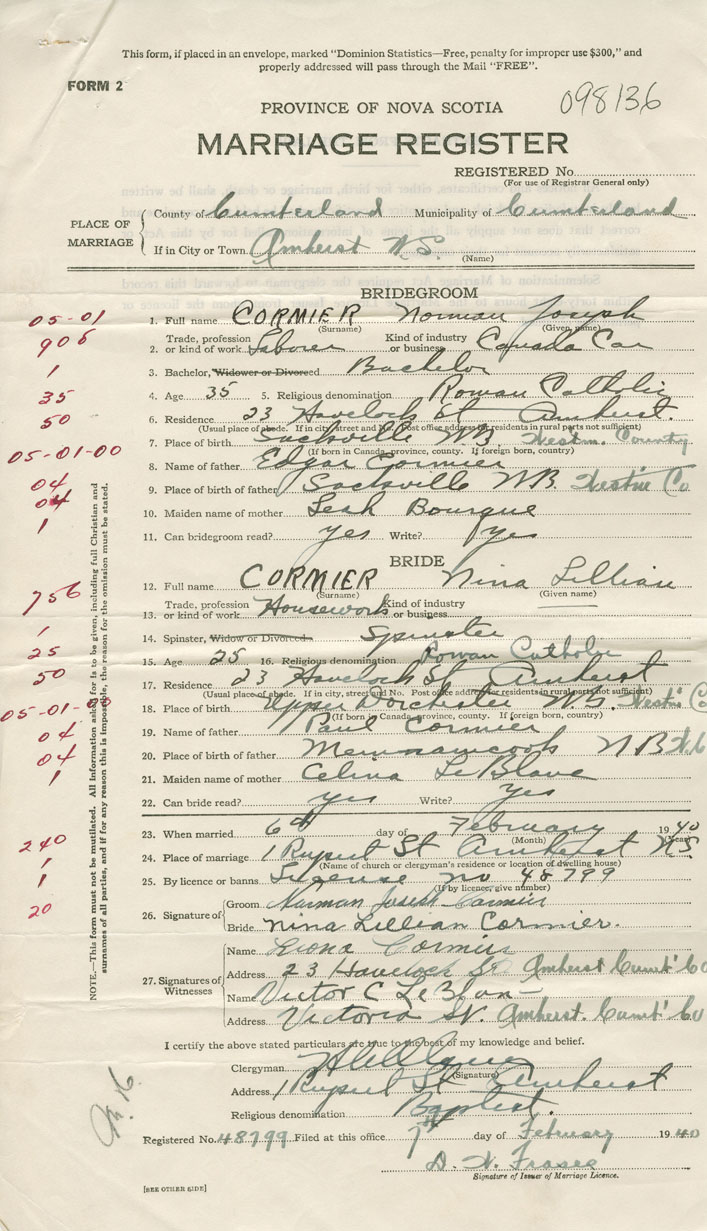 This form, if placed in an envelope, marked "Dominion Statistics—Free, penalty for improper use $300," and
properly addressed will pass through the Mail "FREE".
FORM 2
098136
PROVINCE OF NOVA SCOTIA
MARRIAGE REGISTER
REGISTERED No.
(For use of Registrar General only)
PLACE OF MARRIAGE
County of Cumberland Municipality of Cumberland
If in City or Town Amherst N.S.
(Name)
BRIDEGROOM
05-01 1. Full name CORMIER Norman Joseph
(Surname) (Given name)
906 2. Trade, profession or kind of work Laborer Kind of industry or business Canada Car
1 3. Bachelor, Widower or Divorced Bachelor
35 4. Age 35 5. Religious denomination Roman Catholic
50 6. Residence 23 Havelock St Amherst.
(Usual place of abode. If in city, street and No. Post office address for residents in rural parts not sufficient)
05-01-00 7. Place of birth Sackville NB. Westm. County
(If born in Canada, province, county. If foreign born, country)
8. Name of father Edgar Cormier
04 9. Place of birth of father Sackville NB. Co
04 10. Maiden name of mother Leah Bourque
1 11. Can bridegroom read? yes Write? yes
BRIDE
12. Full name CORMIER Nina Lillian
(Surname) (Given name)
756 13. Trade, profession or kind of work Housework Kind of industry or business
1 14. Spinster, Widow or Divorced Spinster
25 15. Age 25 16. Religious denomination Roman Catholic
50 17. Residence 23 Havelock St Amherst
(Usual place of abode. If in city, street and No. Post office address for residents in rural parts not sufficient)
05-01-00 18. Place of birth Upper Dorchester NB.
(If born in Canada, province, county. If foreign born, country)
04 19. Name of father Paul Cormier
04 20. Place of birth of father Memramcook N B
1 21. Maiden name of mother Celina LeBlanc
22. Can bride read? yes Write? Yes
240 23. When married 6th day of February 1940
(Month) (Year)
1 24. Place of marriage 1 Rupert St Amherst N.S.
(Name of church or clergyman's residence or location of dwelling house)
1 25. By licence or banns License no 48799
(If by licence, give number)
20 26. Signature of
Groom Norman Joseph Cormier
Bride Nina Lillian Cormier.
27. Signatures of Witnesses
Name Liona Cormier
Address 23 Havelock St Amherst Cumb' Co
Name Victor C LeBlanc
Address Victoria St. Amherst. Cumb' Co
I certify the above stated particulars are true to the best of my knowledge and belief.
Clergyman
(Signature)
Address 1 Rupert St Amherst
Religious denomination Baptist.
Registered No. 48799 Filed at this office 7th day of February 1940
D. W. Fraser
Signature of Issuer of Marriage Licence.
[SEE OTHER SIDE]
NOTE.—This form must not be mutilated. All information asked for is to be given, including full Christian and
surnames of all parties, and if for any reason this is impossible, the reason for the omission must be stated.